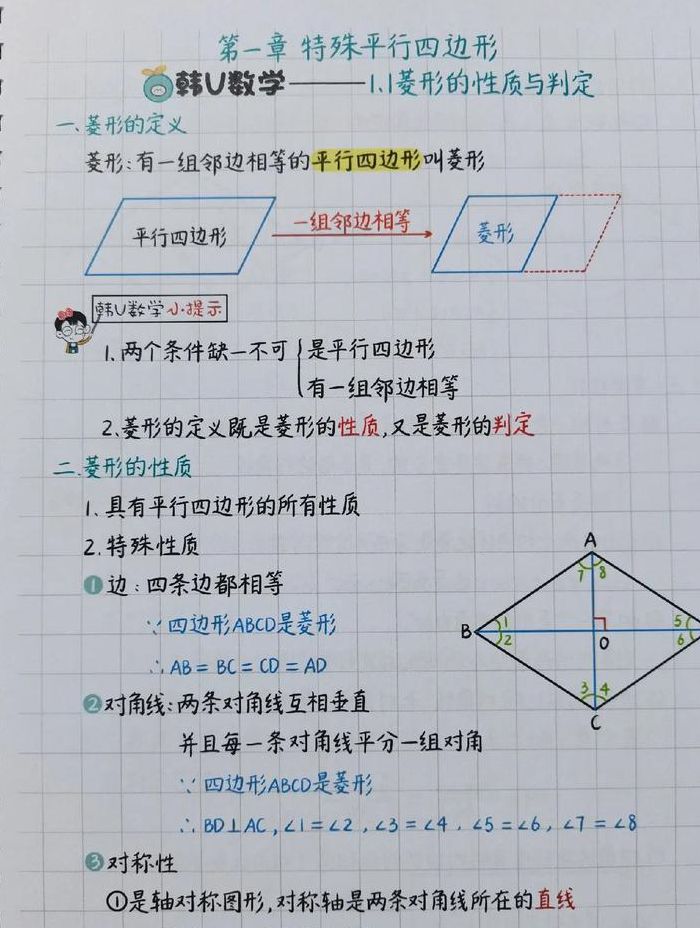 第一章 特殊平行四边形
韩U数学——1.1菱形的性质与判定
一、菱形的定义
菱形:有一组邻边相等的平行四边形叫菱形
平行四边形 一组邻边相等 菱形
韩U数学小提示
1、两个条件缺一不可{是平行四边形
有一组邻边相等
2、菱形的定义既是菱形的性质,又是菱形的判定
二、菱形的性质
1、具有平行四边形的所有性质
2、特殊性质
❶边:四条边都相等
∵四边形ABCD是菱形
∴AB=BC=CD=AD
A
7 8
B 1 5
2 O 6
3 4
C
❷对角线:两条对角线互相垂直
并且每一条对角线平分一组对角
∵四边形ABCD是菱形
∴BD⊥AC,∠1=∠2,∠3=∠4,∠5=∠6,∠7=∠8
❸对称性
①是轴对称图形,对称轴是两条对角线所在的直线